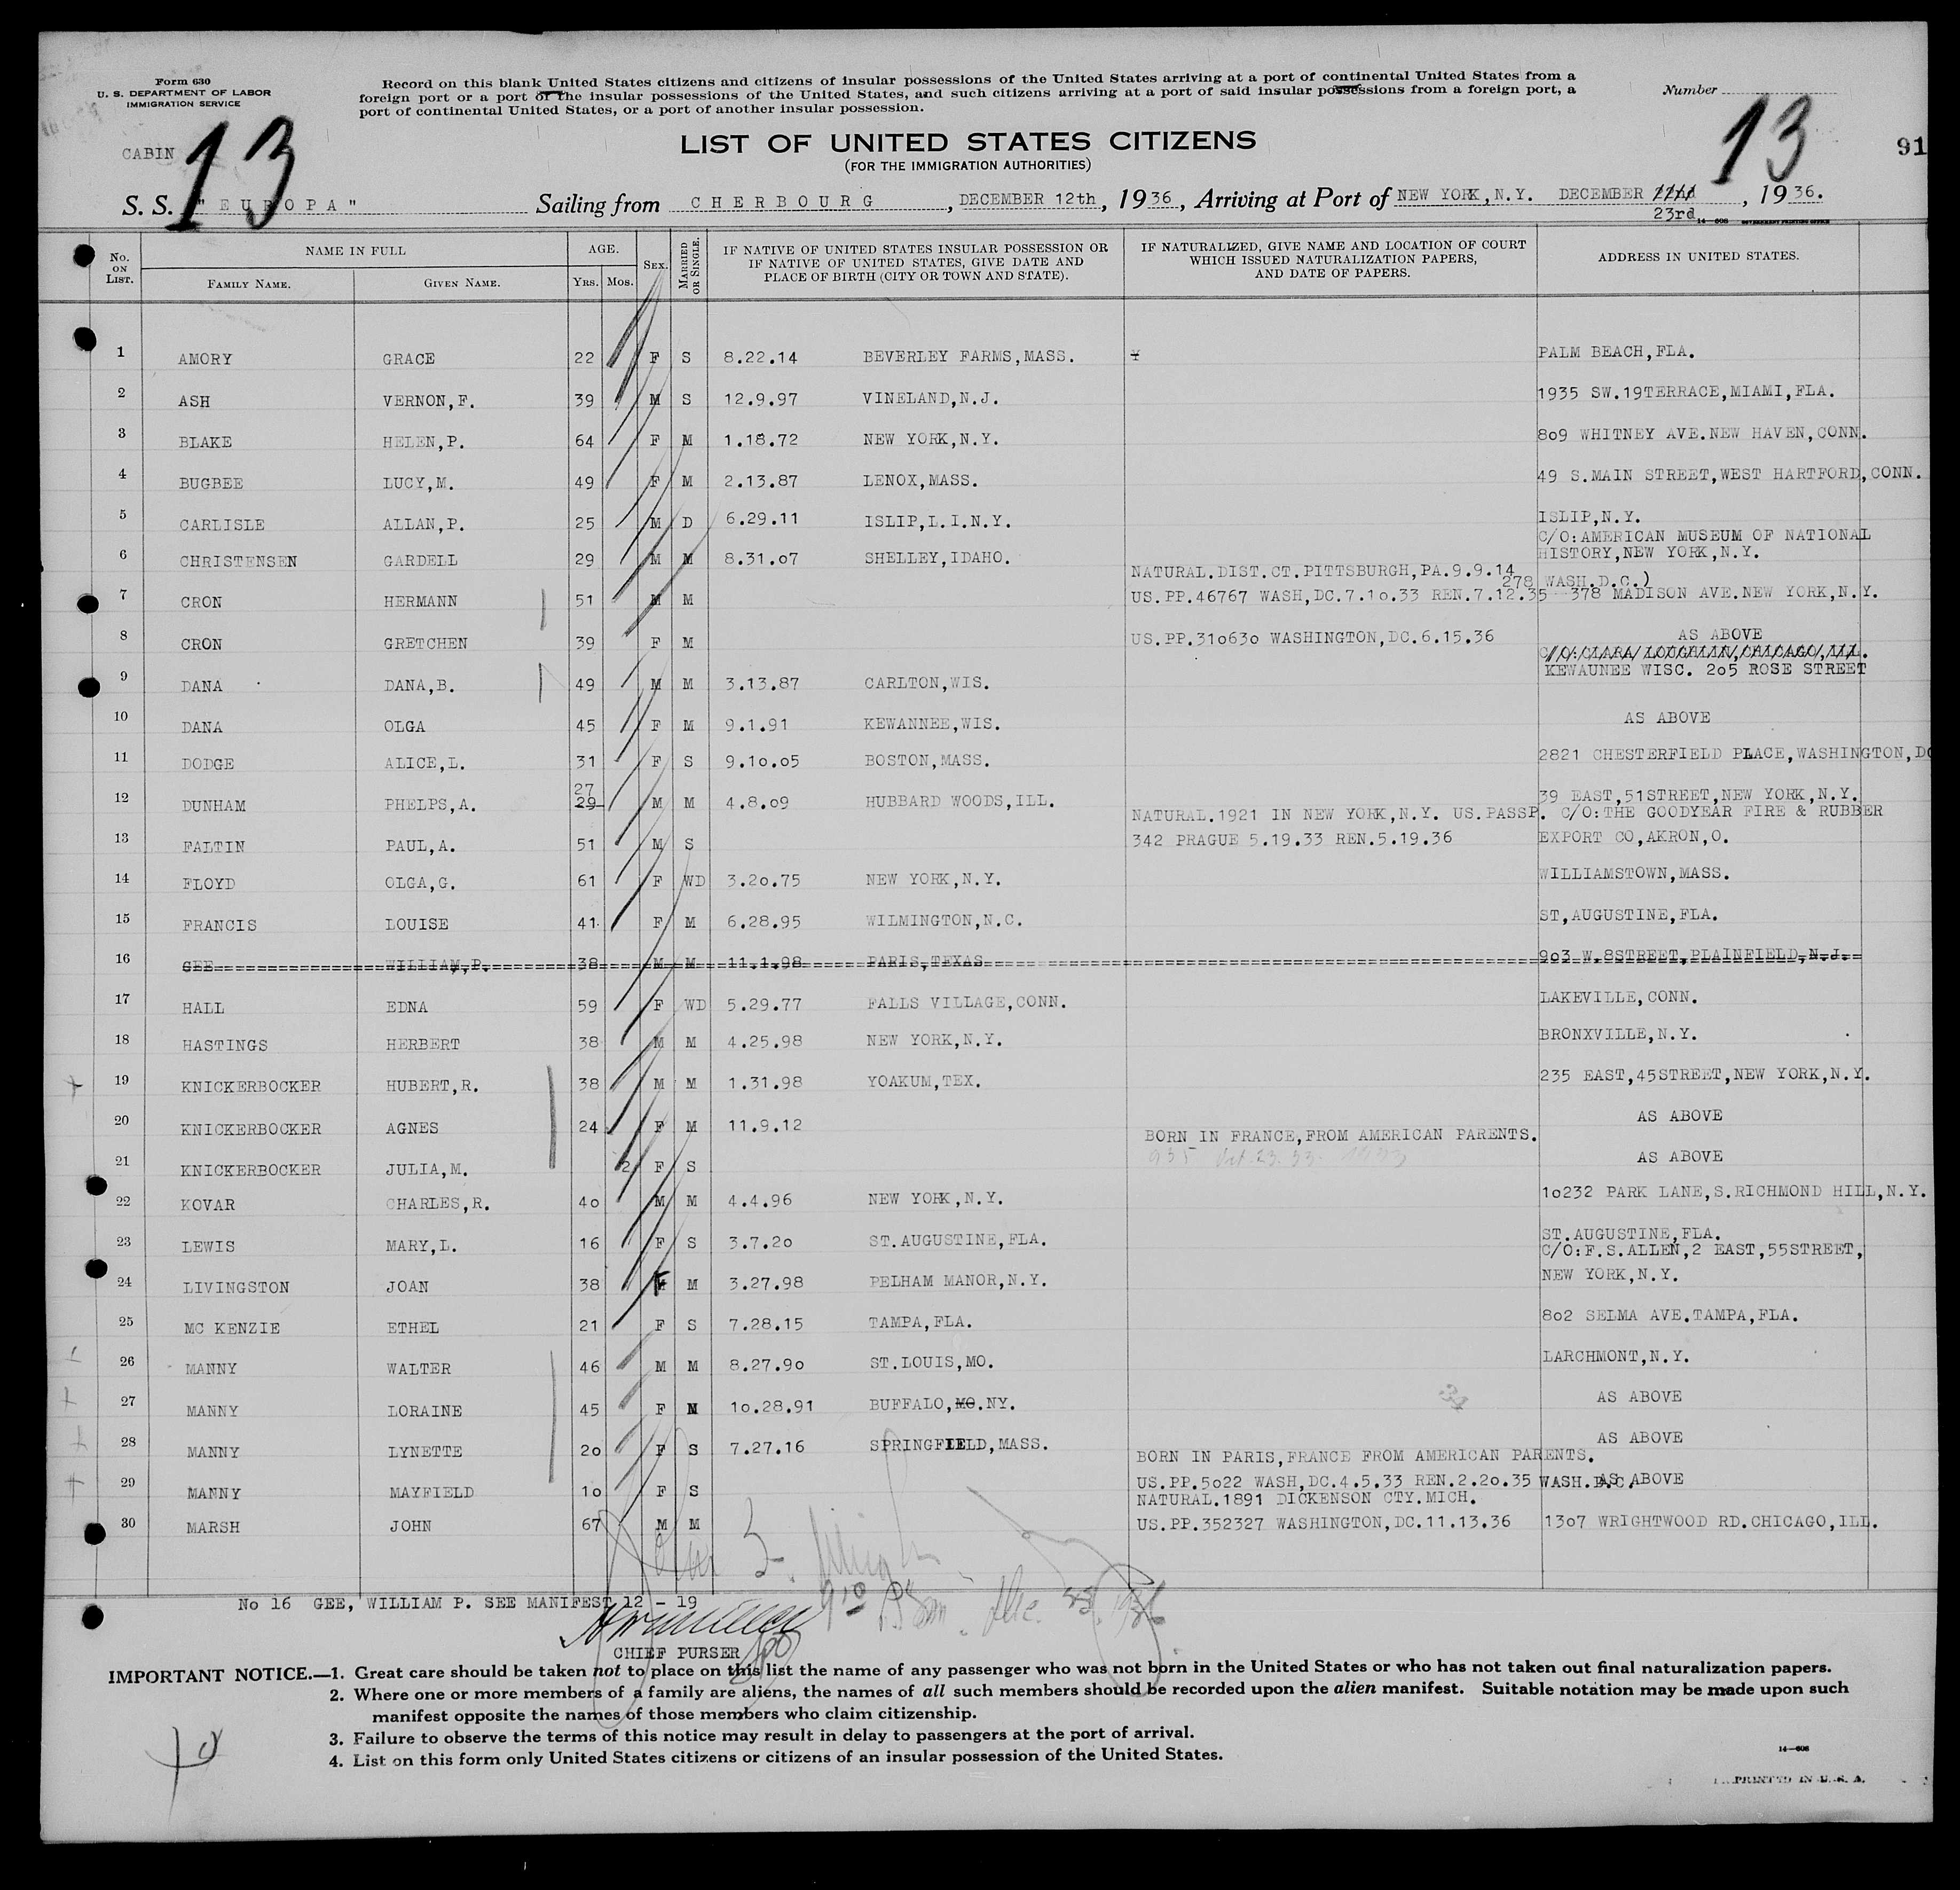 Form 630
U. S. DEPARTMENT OF LABOR
IMMIGRATION SERVICE
Record on this blank United States citizens and citizens of insular possessions of the United States arriving at a port of continental United States from a
foreign port or a port of the insular possessions of the United States, and such citizens arriving at a port of said insular possessions from a foreign port, a
port of continental United States, or a port of another insular possession.
Number
CABIN 13
13
91
LIST OF UNITED STATES CITIZENS
(FOR THE IMMIGRATION AUTHORITIES)
S. S. "EUROPA" Sailing from CHERBOURG, DECEMBER 12th, 1936, Arriving at Port of NEW YORK,N.Y. DECEMBER 23rd, 1936.
14—608 GOVERNMENT PRINTING OFFICE
No. ON LIST. NAME IN FULL FAMILY NAME. GIVEN NAME. AGE. YRS. MOS. SEX. MARRIED OR SINGLE. IF NATIVE OF UNITED STATES INSULAR POSSESSION OR IF NATIVE OF UNITED STATES, GIVE DATE AND PLACE OF BIRTH (CITY OR TOWN AND STATE). IF NATURALIZED, GIVE NAME AND LOCATION OF COURT WHICH ISSUED NATURALIZATION PAPERS, AND DATE OF PAPERS. ADDRESS IN UNITED STATES.
1 AMORY GRACE 22 F S 8.22.14 BEVERLEY FARMS,MASS. PALM BEACH,FLA.
2 ASH VERNON,F. 39 M S 12.9.97 VINELAND,N.J. 1935 SW.19TERRACE,MIAMI,FLA.
3 BLAKE HELEN,P. 64 F M 1.18.72 NEW YORK,N.Y. 809 WHITNEY AVE.NEW HAVEN,CONN.
4 BUGBEE LUCY,M. 49 F M 2.13.87 LENOX,MASS. 49 S.MAIN STREET,WEST HARTFORD,CONN.
5 CARLISLE ALLAN,P. 25 M D 6.29.11 ISLIP,L.I.N.Y. ISLIP,N.Y.
C/O:AMERICAN MUSEUM OF NATIONAL
6 CHRISTENSEN GARDELL 29 M M 8.31.07 SHELLEY,IDAHO. HISTORY,NEW YORK,N.Y.
NATURAL.DIST.CT.PITTSBURGH,PA.9.9.14
278 WASH.D.C.)
7 CRON HERMANN 51 M M US.PP.46767 WASH,DC.7.10.33 REN.7.12.35 378 MADISON AVE.NEW YORK,N.Y.
8 CRON GRETCHEN 39 F M US.PP.310630 WASHINGTON,DC.6.15.36 AS ABOVE
C/O:CLARA LODGEIAN,CHICAGO,ILL.
KEWAUNEE WISC. 205 ROSE STREET
9 DANA DANA,B. 49 M M 3.13.87 CARLTON,WIS.
10 DANA OLGA 45 F M 9.1.91 KEWANNEE,WIS. AS ABOVE
11 DODGE ALICE,L. 31 F S 9.10.05 BOSTON,MASS. 2821 CHESTERFIELD PLACE,WASHINGTON,DC
27
12 DUNHAM PHELPS,A. 29 M M 4.8.09 HUBBARD WOODS,ILL. 39 EAST,51STREET,NEW YORK,N.Y.
NATURAL.1921 IN NEW YORK,N.Y. US.PASSP. C/O:THE GOODYEAR FIRE & RUBBER
13 FALTIN PAUL,A. 51 M S 342 PRAGUE 5.19.33 REN.5.19.36 EXPORT CO,AKRON,O.
14 FLOYD OLGA,G. 61 F WD 3.20.75 NEW YORK,N.Y. WILLIAMSTOWN,MASS.
15 FRANCIS LOUISE 41 F M 6.28.95 WILMINGTON,N.C. ST,AUGUSTINE,FLA.
16 GEE WILLIAM,P. 38 M M 11.1.98 PARIS,TEXAS 903 W.8STREET,PLAINFIELD,N.J.
17 HALL EDNA 59 F WD 5.29.77 FALLS VILLAGE,CONN. LAKEVILLE,CONN.
18 HASTINGS HERBERT 38 M M 4.25.98 NEW YORK,N.Y. BRONXVILLE,N.Y.
19 KNICKERBOCKER HUBERT,R. 38 M M 1.31.98 YOAKUM,TEX. 235 EAST,45STREET,NEW YORK,N.Y.
20 KNICKERBOCKER AGNES 24 F M 11.9.12 AS ABOVE
BORN IN FRANCE,FROM AMERICAN PARENTS.
21 KNICKERBOCKER JULIA,M. 2 F S AS ABOVE
22 KOVAR CHARLES,R. 40 M M 4.4.96 NEW YORK,N.Y. 10232 PARK LANE,S.RICHMOND HILL,N.Y.
23 LEWIS MARY,L. 16 F S 3.7.20 ST.AUGUSTINE,FLA. ST.AUGUSTINE,FLA.
C/O:F.S.ALLEN,2 EAST,55STREET,
24 LIVINGSTON JOAN 38 F M 3.27.98 PELHAM MANOR,N.Y. NEW YORK,N.Y.
25 MC KENZIE ETHEL 21 F S 7.28.15 TAMPA,FLA. 802 SELMA AVE.TAMPA,FLA.
26 MANNY WALTER 46 M M 8.27.90 ST.LOUIS,MO. LARCHMONT,N.Y.
27 MANNY LORAINE 45 F M 10.28.91 BUFFALO,MO.NY. AS ABOVE
28 MANNY LYNETTE 20 F S 7.27.16 SPRINGFIELD,MASS. AS ABOVE
BORN IN PARIS,FRANCE FROM AMERICAN PARENTS.
29 MANNY MAYFIELD 10 F S US.PP.5022 WASH,DC.4.5.33 REN.2.20.35 WASH.D.C. AS ABOVE
NATURAL.1891 DICKENSON CTY.MICH.
30 MARSH JOHN 67 M M US.PP.352327 WASHINGTON,DC.11.13.36 1307 WRIGHTWOOD RD.CHICAGO,ILL.
No 16 GEE, WILLIAM P. SEE MANIFEST 12 - 19
CHIEF PURSER
IMPORTANT NOTICE.—1. Great care should be taken not to place on this list the name of any passenger who was not born in the United States or who has not taken out final naturalization papers.
2. Where one or more members of a family are aliens, the names of all such members should be recorded upon the alien manifest. Suitable notation may be made upon such
manifest opposite the names of those members who claim citizenship.
3. Failure to observe the terms of this notice may result in delay to passengers at the port of arrival.
4. List on this form only United States citizens or citizens of an insular possession of the United States.
14—608
PRINTED IN U. S. A.